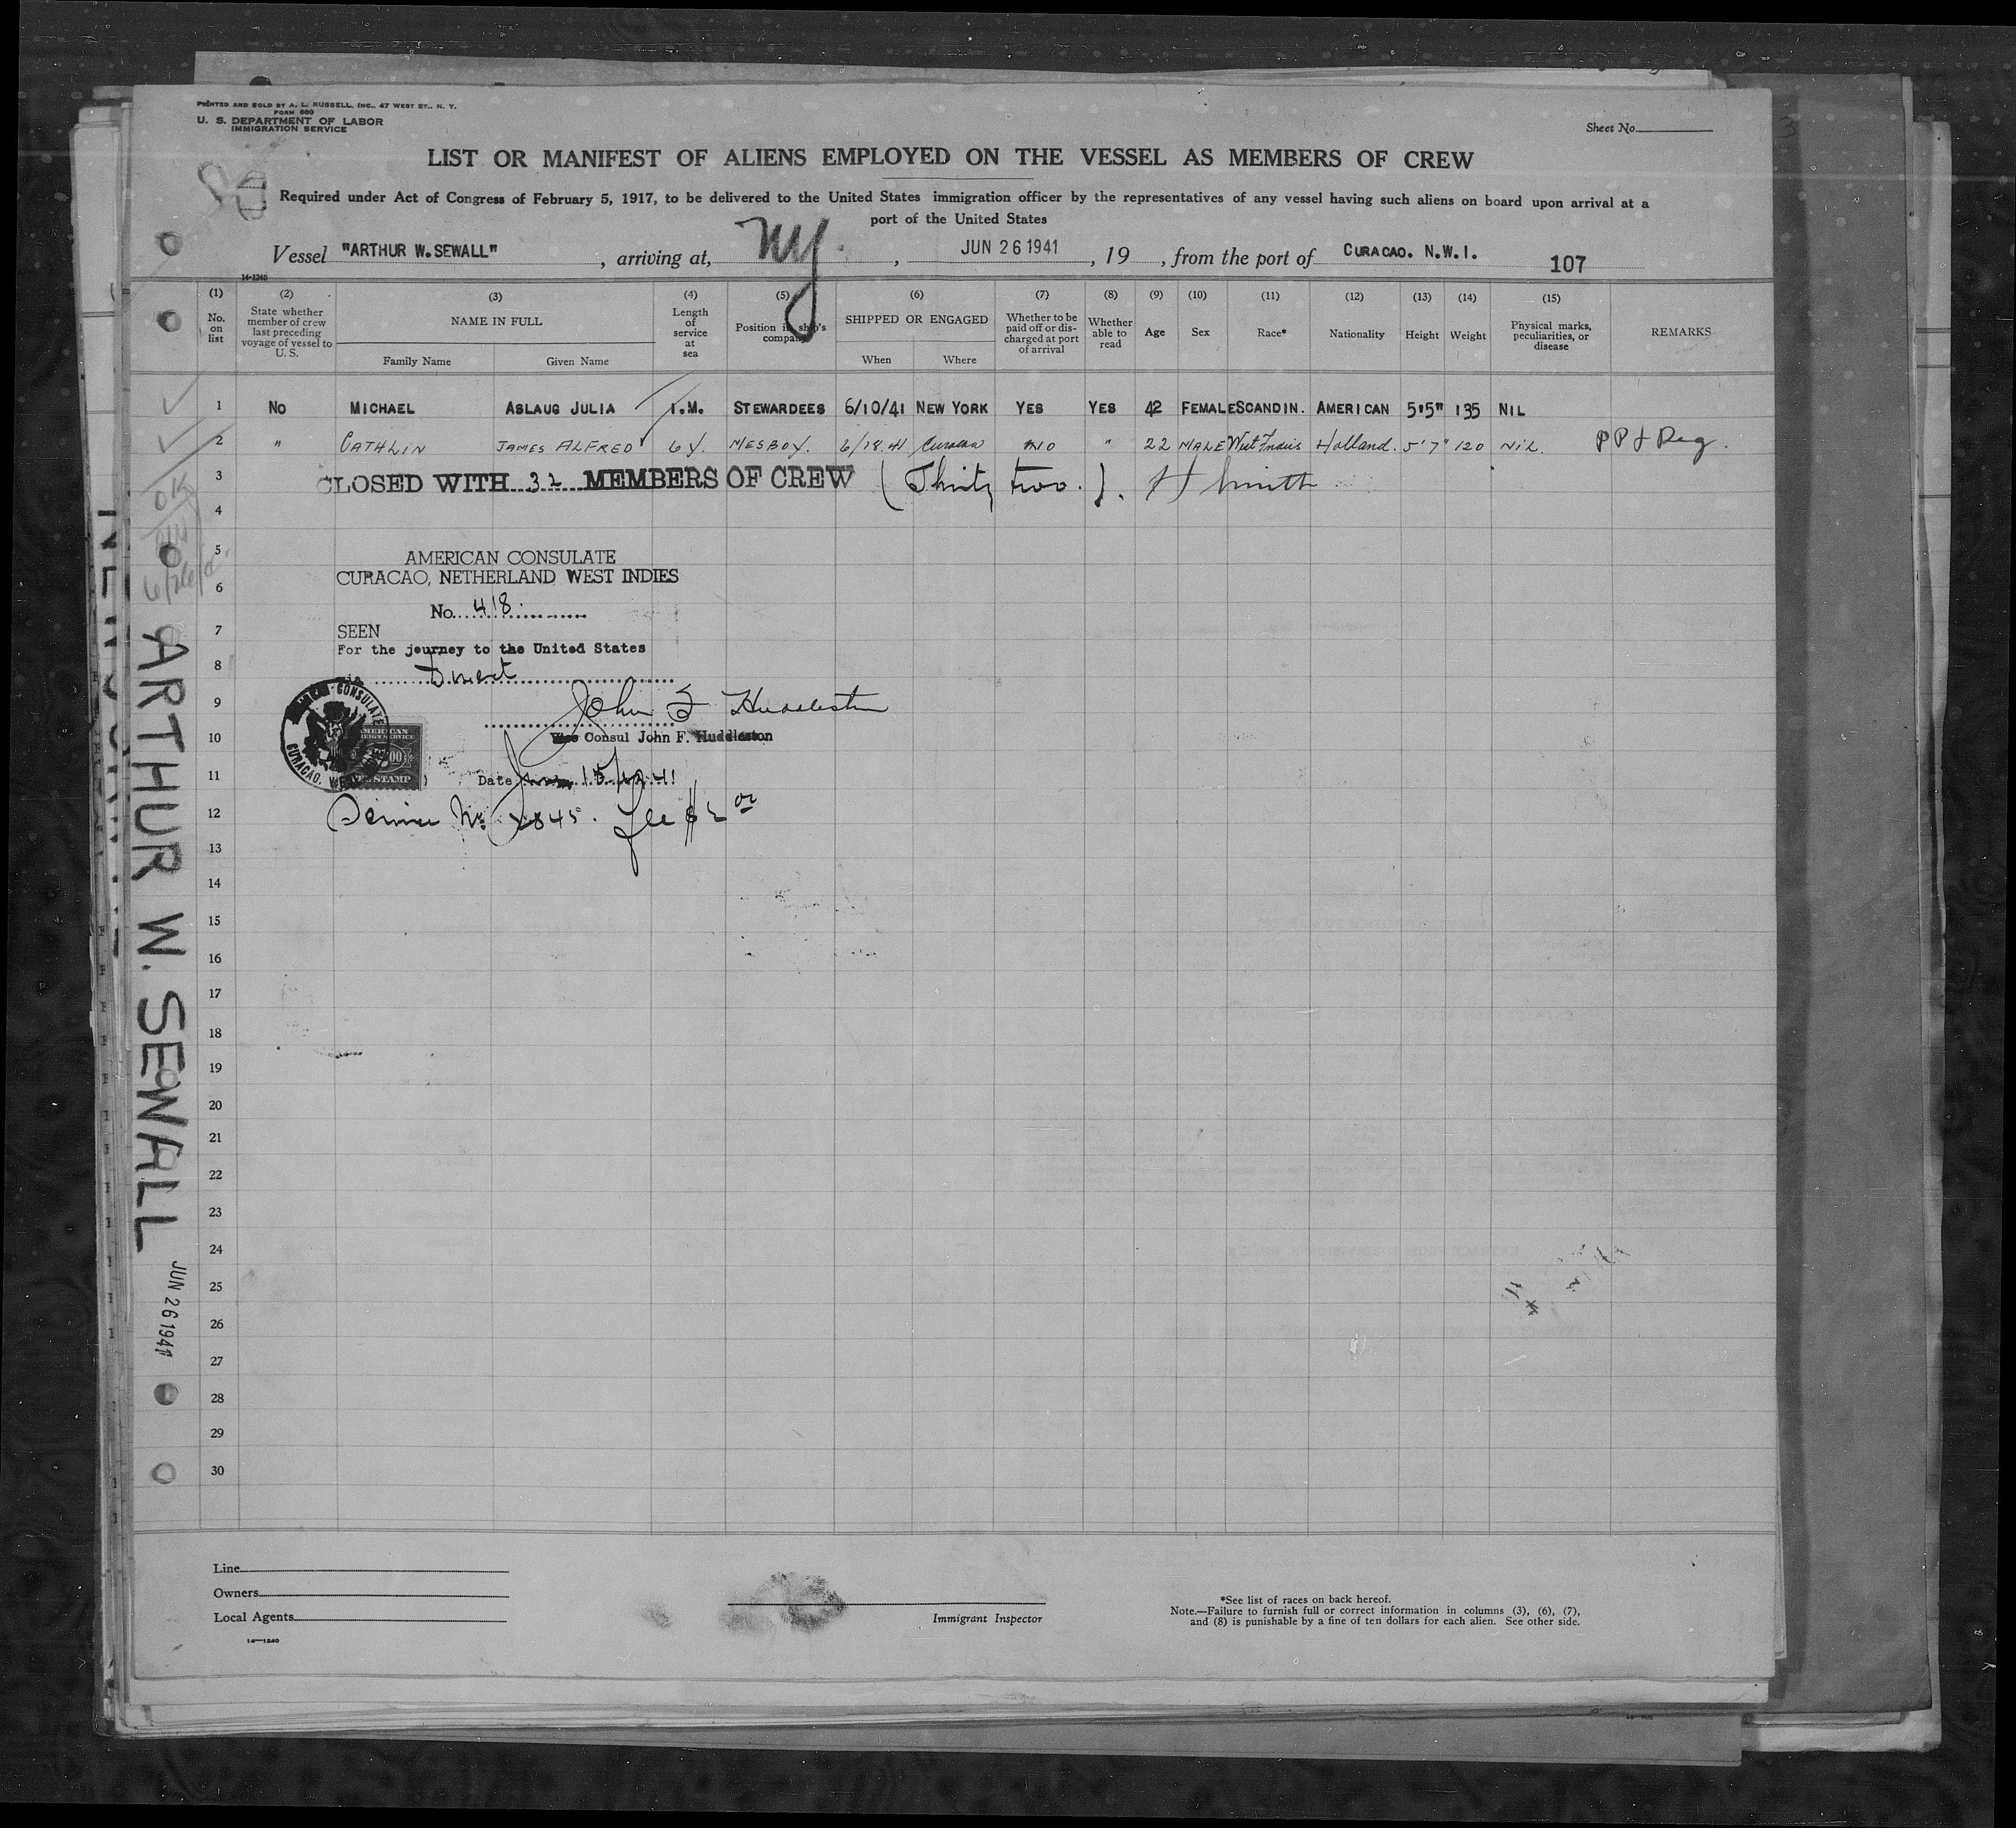 PRINTED AND SOLD BY A. L. RUSSELL, INC., 47 WEST ST., N. Y.
FORM 660
U. S. DEPARTMENT OF LABOR
IMMIGRATION SERVICE
Sheet No.
LIST OR MANIFEST OF ALIENS EMPLOYED ON THE VESSEL AS MEMBERS OF CREW
Required under Act of Congress of February 5, 1917, to be delivered to the United States immigration officer by the representatives of any vessel having such aliens on board upon arrival at a
port of the United States
Vessel "ARTHUR W. SEWALL", arriving at, NY., JUN 26 1941, 19 , from the port of CURACAO. N.W.I. 107
14-1240
(1) (2) (3) (4) (5) (6) (7) (8) (9) (10) (11) (12) (13) (14) (15)
No. on list
State whether member of crew last preceding voyage of vessel to U. S.
NAME IN FULL
Family Name
Given Name
Length of service at sea
Position in ship's company
SHIPPED OR ENGAGED
When
Where
Whether to be paid off or discharged at port of arrival
Whether able to read
Age
Sex
Race*
Nationality
Height
Weight
Physical marks, peculiarities, or disease
REMARKS
1 NO MICHAEL ASLAUG JULIA 1.M. STEWARDEES 6/10/41 NEW YORK YES YES 42 FEMALE SCANDIN. AMERICAN 5'5" 135 NIL
2 " CATHLIN JAMES ALFRED 6 Y. MESBOY. 6/18.41 Curacao NO " 22 MALE West Indies Holland. 5'7" 120 NIL. PP & Reg.
3 CLOSED WITH 32 MEMBERS OF CREW (Thirty two.). H Smith
4
5
AMERICAN CONSULATE
CURACAO, NETHERLAND WEST INDIES
6
No. 418.
7
SEEN
For the journey to the United States
8
direct
9
John F Huddleston
10
Vice Consul John F. Huddleston
11
Date
12
Service No. 2845. Fee $2 00
13
14
15
16
17
18
19
20
21
22
23
24
25
26
27
28
29
30
OK
ARTHUR W. SEWALL
JUN 26 1941
Line
Owners
Local Agents
14—1240
Immigrant Inspector
*See list of races on back hereof.
Note.—Failure to furnish full or correct information in columns (3), (6), (7),
and (8) is punishable by a fine of ten dollars for each alien. See other side.